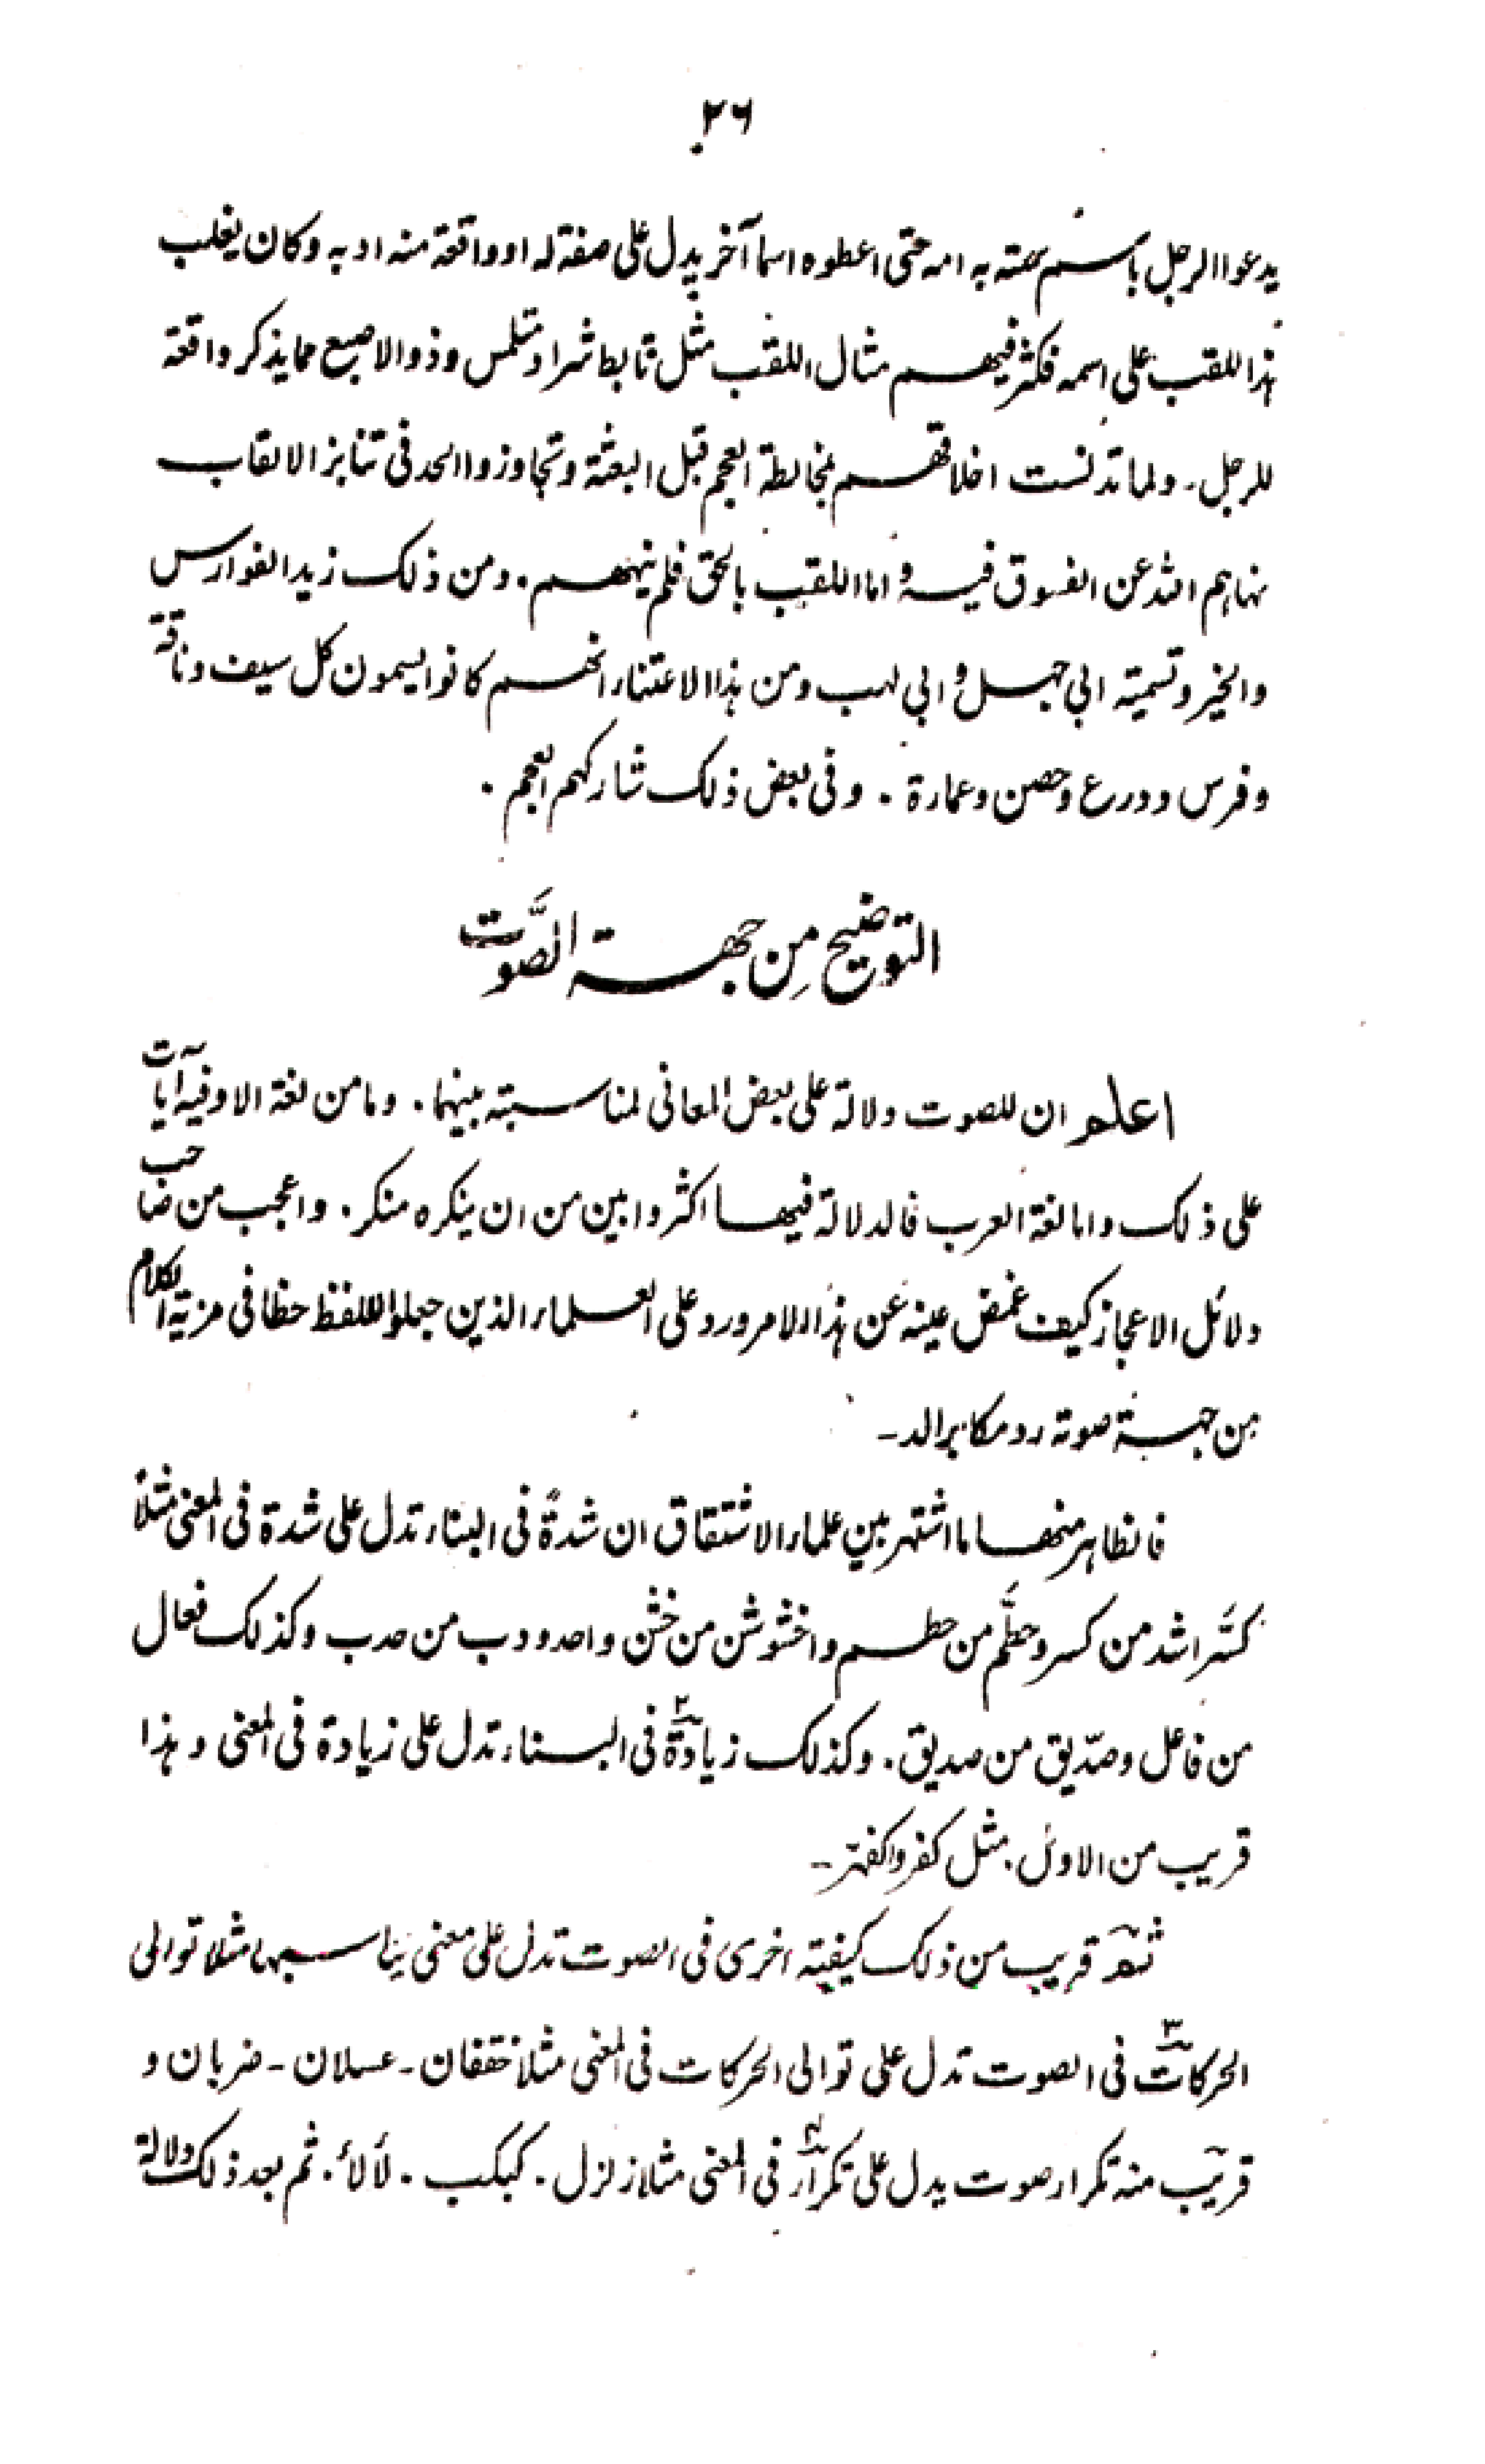 ٢٦
يدعوا الرجل باسم سمته به امه حتى اعطوه اسما آخر يدل على صفة له او واقعة منه او به وكان يغلب
هذا اللقب على اسمه فكثر فيهم مثال اللقب مثل تابط شرا ومتلمس وذو الاصبع مما يذكر واقعة
للرجل۔ ولما تدنست اخلاقهم بمخالطة العجم قبل البعثة وتجاوزوا الحد فى تنابز الالقاب
نهاهم الله عن الفسوق فيه واما اللقب بالحق فلم ينههم. ومن ذلك زيد الفوارس
والخير وتسمية ابي جهل وابي لهب ومن هذا الاعتناء انهم كانوا يسمون كل سيف وناقة
وفرس ودرع وحصن وعمارة . وفى بعض ذلك شاركهم العجم .
التوضيح مِن جهة الصَّوت
اعلم ان للصوت دلالة على بعض المعانى لمناسبة بينهما. وما من لغة الا وفيه آيات
على ذلك واما لغة العرب فالدلالة فيها اكثر وابين من ان ينكره منكر. واعجب من صاحب
دلائل الاعجاز كيف غمض عينه عن هذا الامر ورد على العلماء الذين جعلوا للفظ حظا فى مزية الكلام
من جهة صوته رد مكابر الد۔
فالظاهر منها ما اشتهر بين علماء الاشتقاق ان شدةً فى البناء تدل على شدة فى المعنى مثلاً
كسَّر اشد من كسر وحطَّم من حطم واخشوشن من خشن واحدودب من حدب وكذلك فعال
من فاعل وصدّيق من صديق. وكذلك زيادة٢ فى البناء تدل على زيادة فى المعنى وهذا
قريب من الاول. مثل كفر واكفهرّ۔
ثم قريب من ذلك كيفية اخرى فى الصوت تدل على معنى يناسبها مثلا توالى
الحركات٣ فى الصوت تدل على توالى الحركات فى المعنى مثلا خفقان۔ عسلان۔ ضربان و
قريب منه تكرار صوت يدل على تكرار٤ فى المعنى مثلا زلزل. كبكب. لَألأ. ثم بعد ذلك دلالة